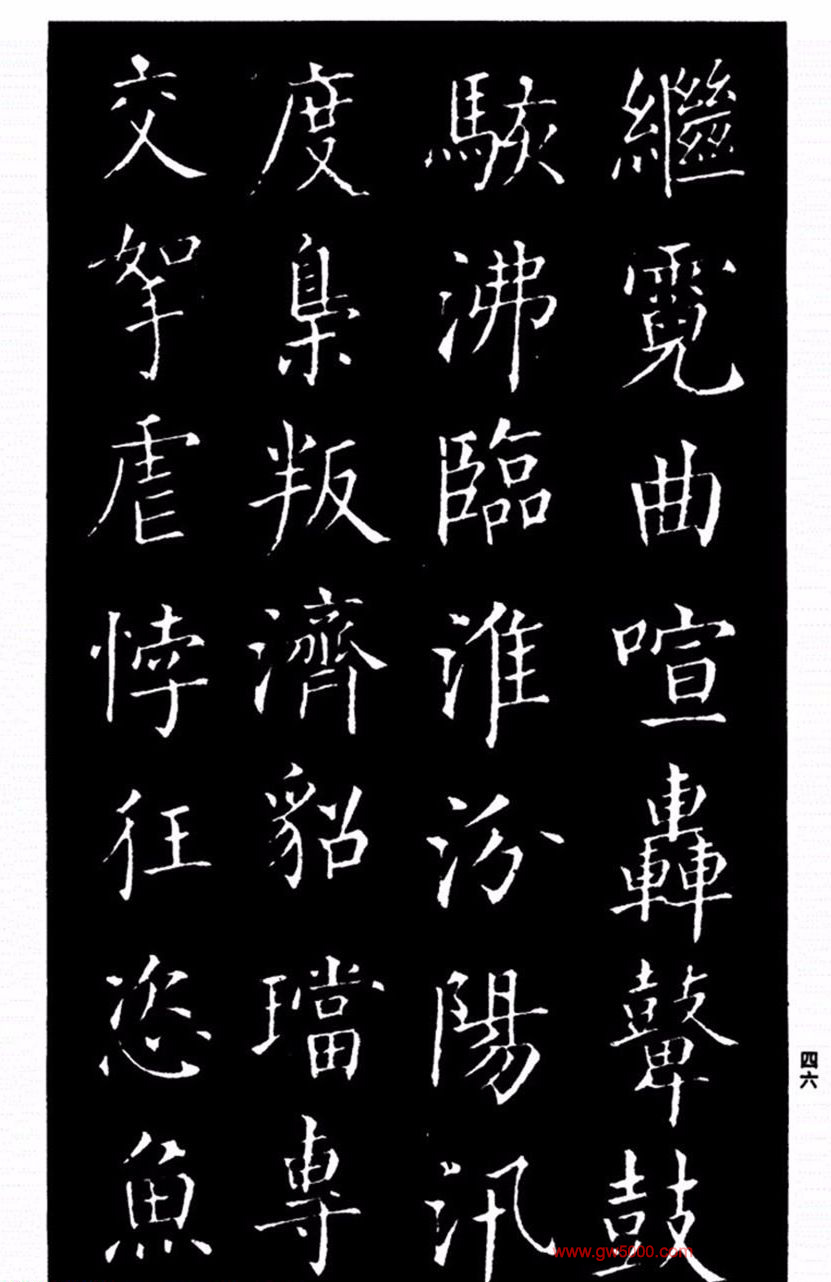 繼霓曲喧轟鼙鼓
駭沸臨淮汾陽汛
度梟叛濟貂璫專
交挐虐悖狂恣魚
四六
www.gw5000.com